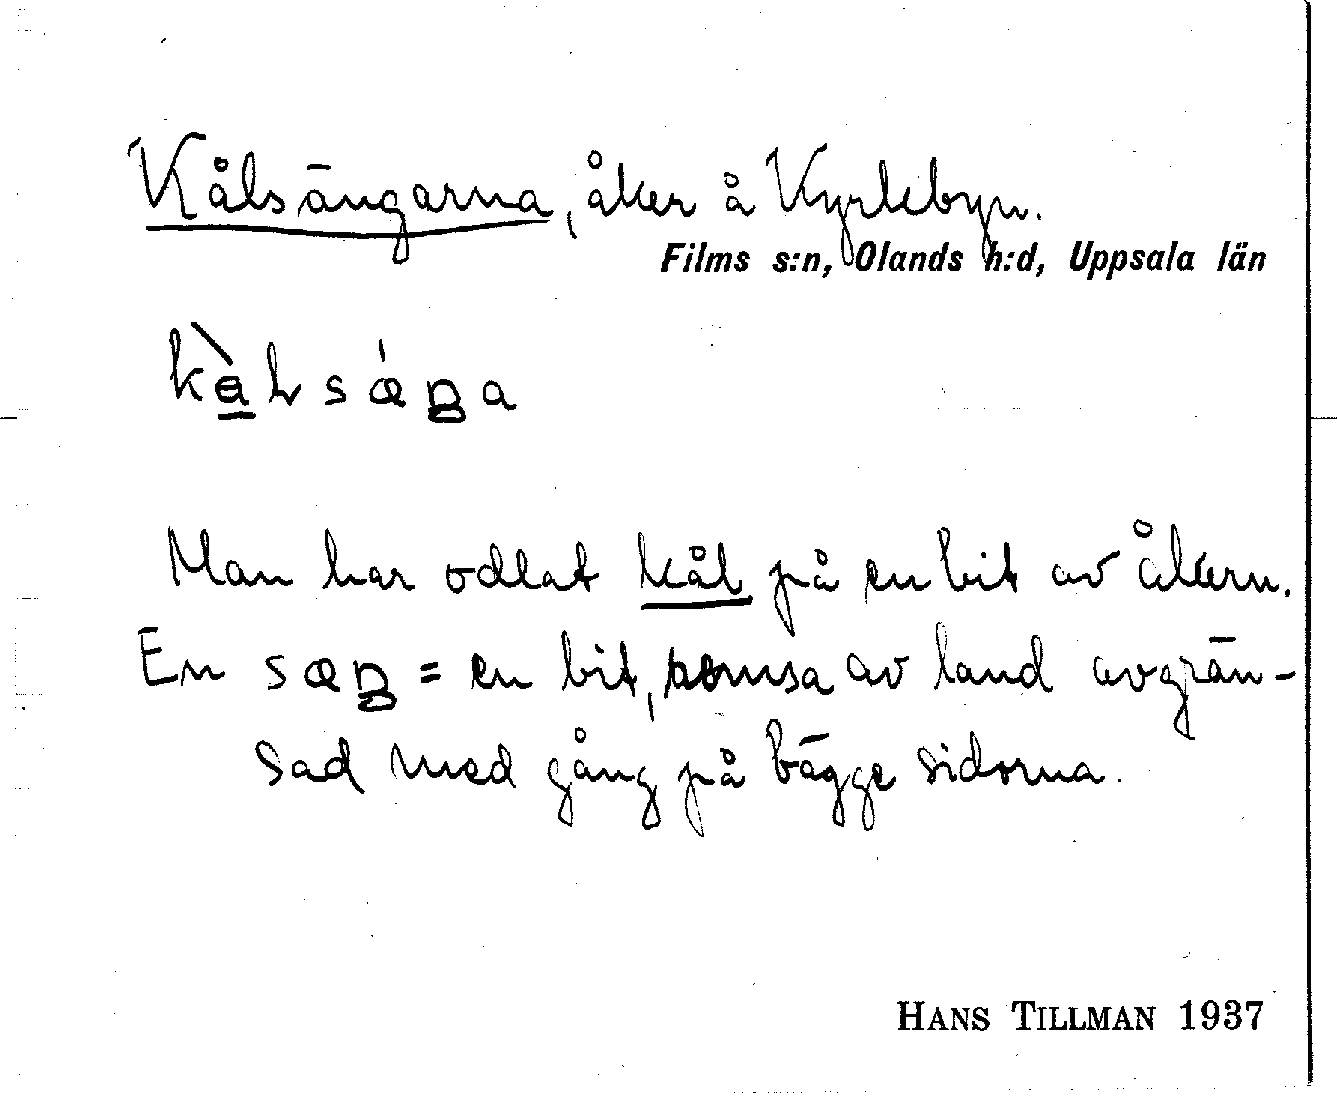 Kålsängarna, åker å Kyrkbyn.
Films s:n, Olands h:d, Uppsala län
Man har odlat kål på en bit av åkern.
En sæŋ = en bit, remsa av land avgrän-
sad med gång på bägge sidorna.
HANS TILLMAN 1937